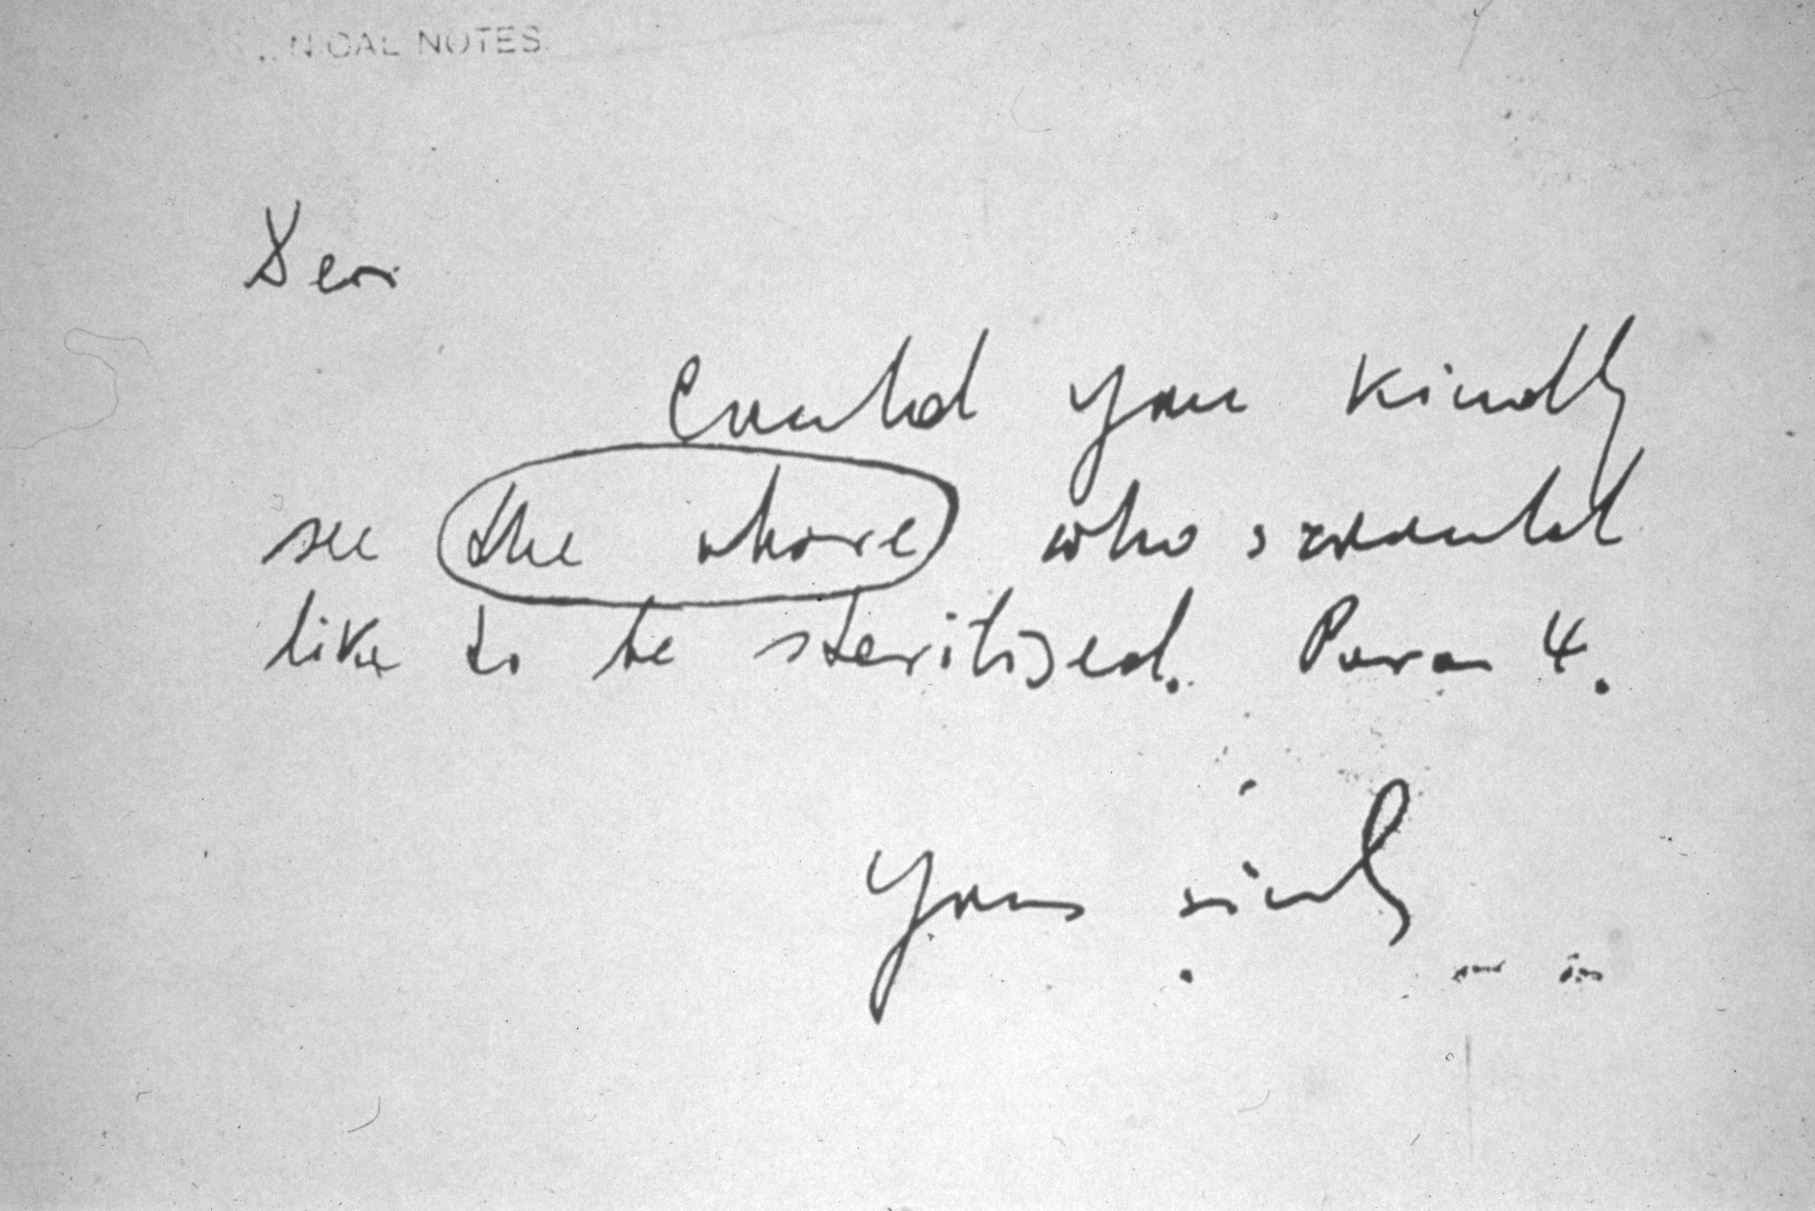 NICAL NOTES
Dear
Could you kindly
see the above who would
like to be sterilised. Para 4.
Yours sincerely